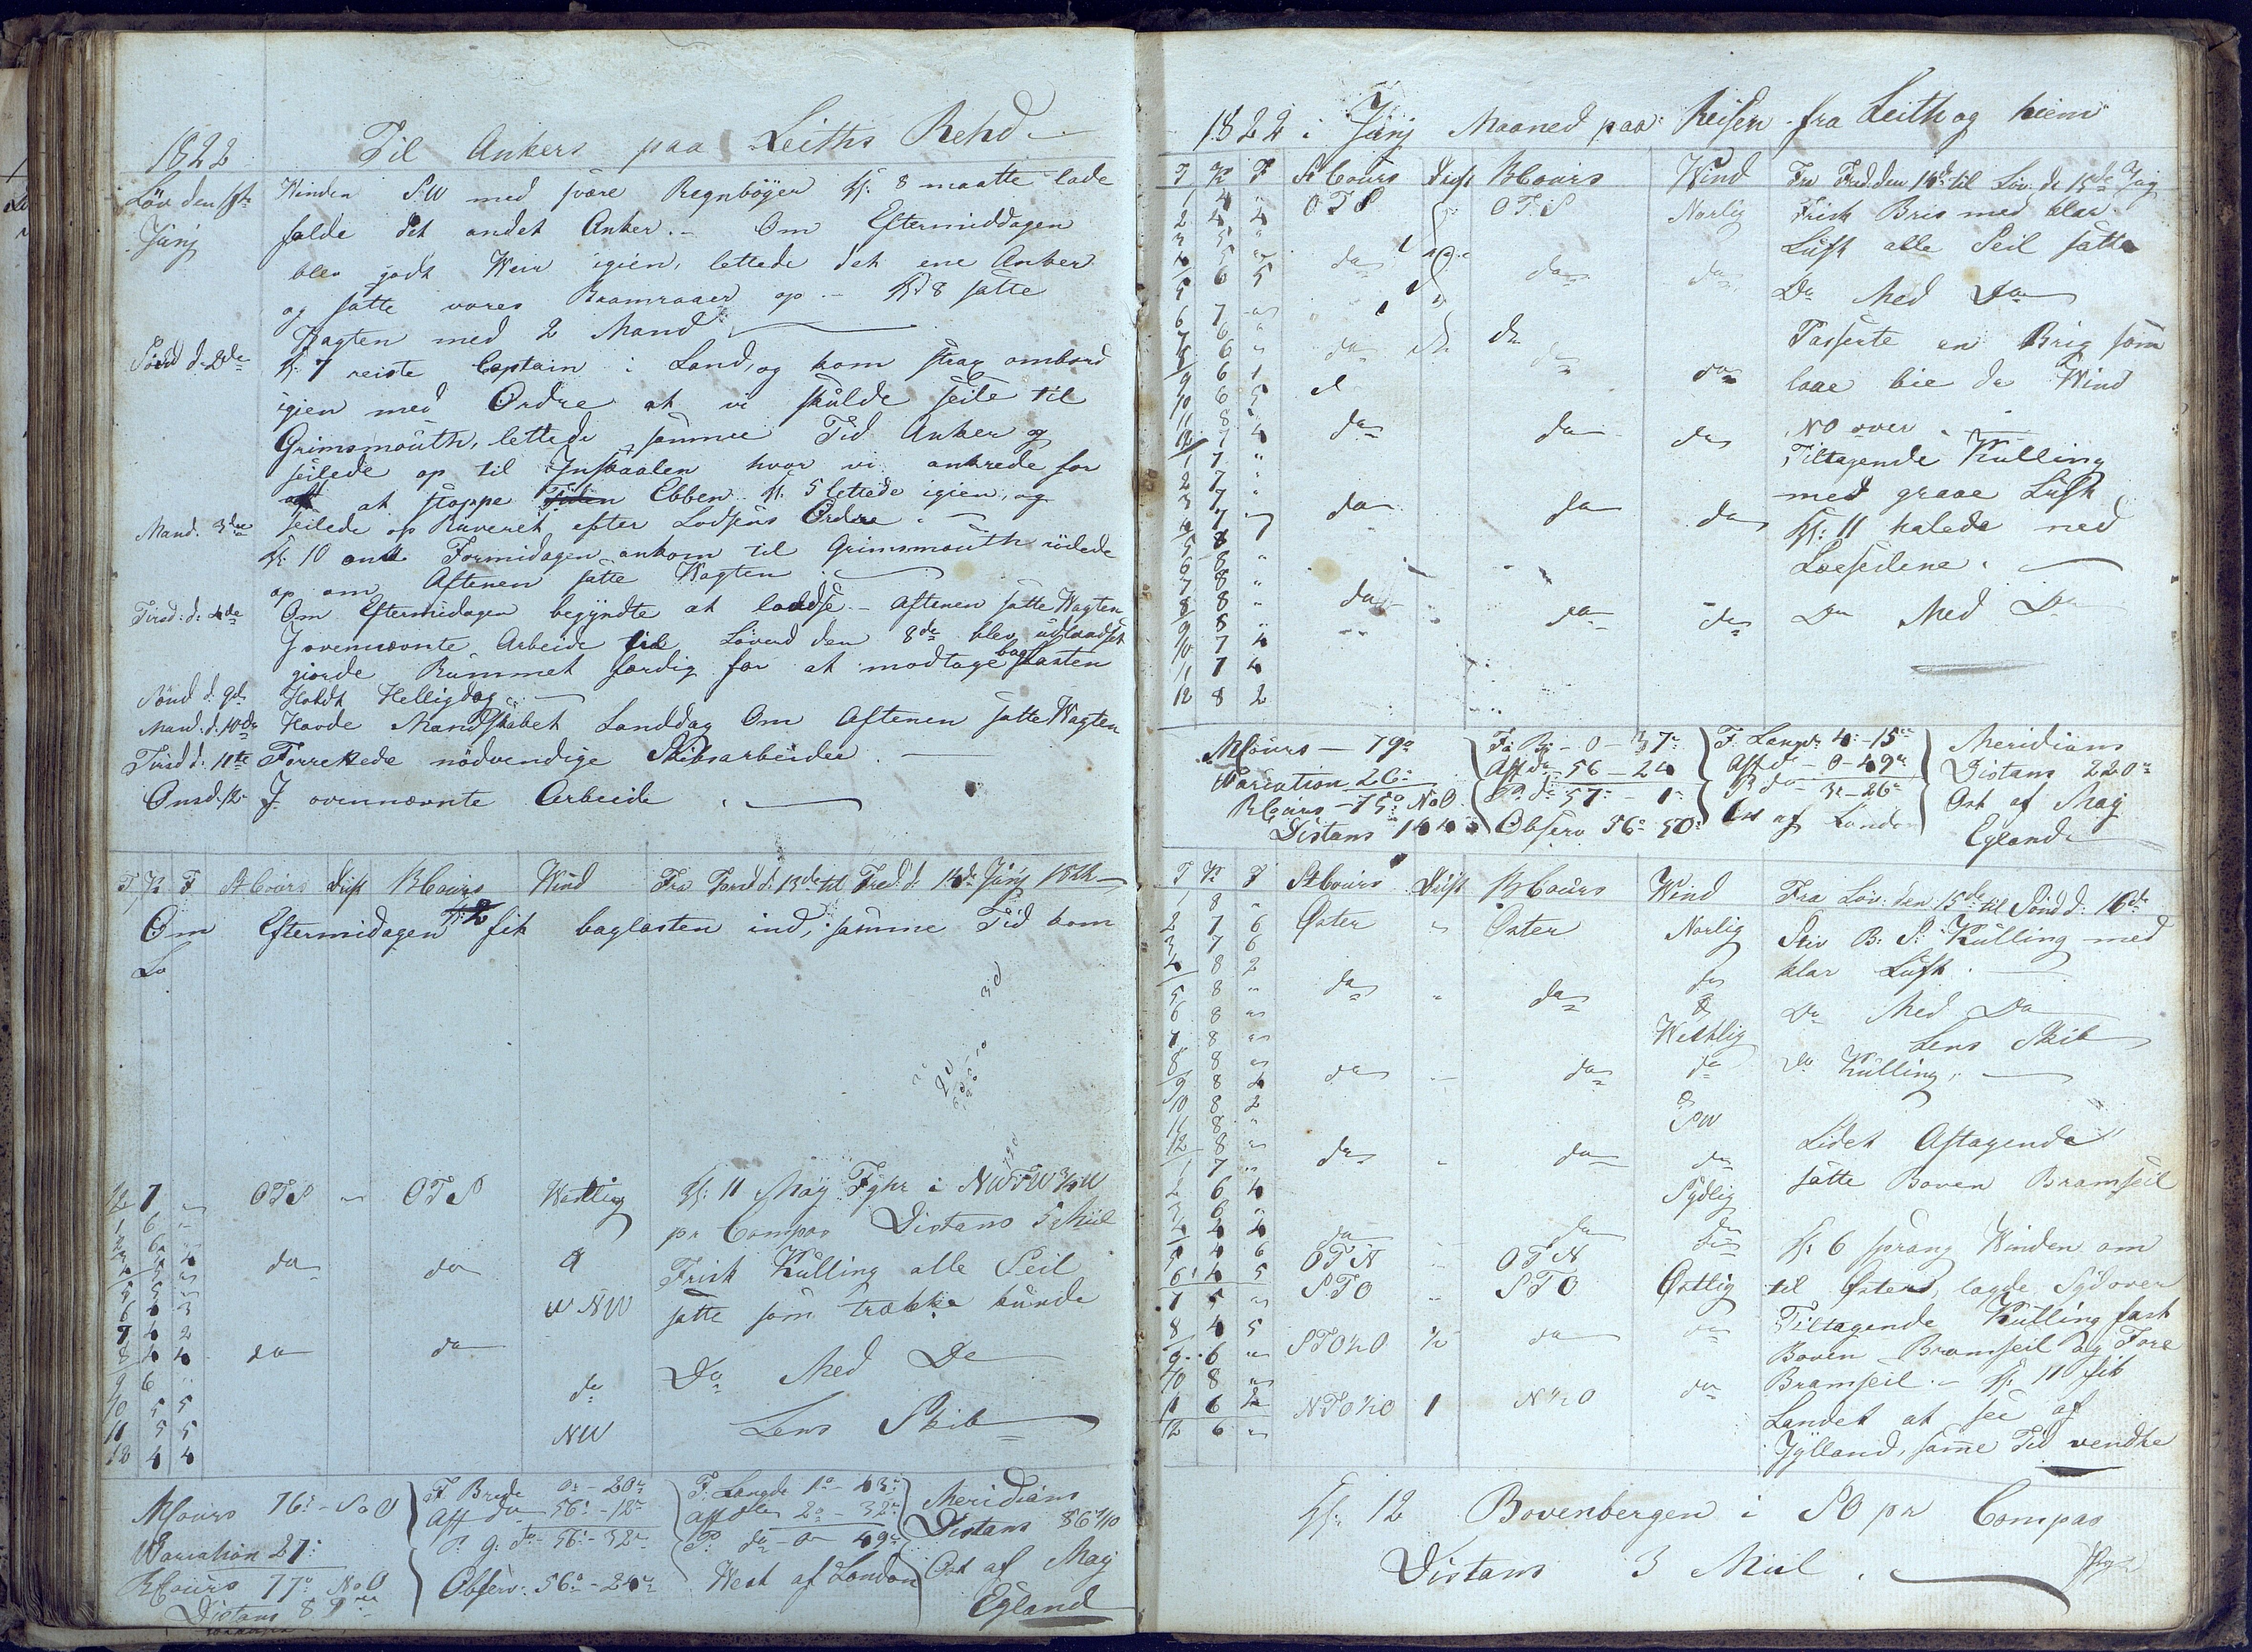 1822 Til Ankers paa Leiths Rehd
Löv den 1ste Winden SW med svære Regnböyer Kl: 8 maatte lade
Junj falde det andet Anker. - Om Eftermiddagen
blev godt Weir igien, lettede det ene Anker
og satte vores Bramraaer op - Kl 8 satte
Wagten med 2 Mand
Sönd d. 2de Kl: 7 reiste Captain i Land, og kom strax ombord
igien med Ordre at vi skulde seile til
Grimsmouth, lettede samme Tid Anker og
seilede op til Inskaalen hvor vi ankrede for
at stoppe Tiden Ebben Kl: 5 lettede igien, og
Mand. 3die seilede op Reveret efter Lodsens Ordre. -
Kl: 10 om Formidagen ankom til Grimsmouth
op om Aftenen satte Wagten
Tirsd: d: 4de Om Eftermidagen begyndte at laadse - Aftenen satte Wagten
J ovennævnte Arbeide til Löverd den 8de blev udlaadset
giorde Rummet færdig for at modtage baglasten
Sönd d. 9de Holdt Helligdag
Mand. d. 10de Havde Mandskabet Landdag Om Aftenen satte Wagten
Tirsd d: 11te Forrettede nödvendige Skibsarbeider. -
Onsd. 12 J ovennævnte Arbeide
T K F St Cours Drift B Cours Wind Fra Torsd d: 13de til Fred: d: 14de Junj
Om Eftermidagen fik baglasten ind, samme Tid kom
Lo
12 7 " OTS " OTS Westlig Kl: 11 May Fyhr i NWTW 3/4 W
1 6 " pr Compas Distans 5 Miil
2 6
3 5 4 da da Frisk Kulling alle Seil
4 5 "
5 5 " W NW satte som trække kunde
6 4 3
7 4 2
8 4 4 da da Da Med Da
9 6 " da
10 5 5
11 5 5 NW Lens Skib
12 4 4
M Cours 76° - S O F. Brede 0° - 20 F: Längde 1° - 43 Meridians
Aff da 56° - 12 aff da 2° - 32 Distans 86
Wariation 27° P: g: da 56° - 32 P: da - 0 49 Ost af May
R Cours 77° N O Observ: 56° - 24 West af London Egland
Distans 89
1822 i Junj Maaned paa Reisen fra Leith og hiem
T K F St Cours Drift B Cours Wind Fra Fred den 14de til Löv: d: 15de Junj
1 4 " OTS OTS Norlig Frisk Bris med klar
2 4 4
3 5 " Luft alle Seil satte
4 5 " da da da
5 6 5 Da Med Da
6 7 "
7 6 " Passerte en Brig som
8 6 " da da da laae bie da Wind
9 6 1
10 6 5 NO over
11 8 "
12 7 4 da da da Tiltagende Kulling
1 7 " med graae Luft
2 7 "
3 7 " Kl: 11 halede ned
4 7 " da da da Læseilene.
5 8 "
6 8 "
7 8 "
8 8 " da da da Da Med Da
9 8 "
10 7 4
11 7 4
12 8 2
M Cours - 79° Fa: B: - 0 - 37 F: Langd: 4° - 15 Meridians
Wariation 26° Aff da 56 - 24 Aff d - 0 - 49 Distans 220
R Cours - 75° N O P: d: 57° - 1 P da - 3° - 26 Ost af May
Distans 144 Observ 56° 50 Ost af London Egland
T K F St Cours Drift B Cours Wind Fra Löv: den 15de til Sönd d: 16de
1 8 "
2 7 6 Öster " Öster Norlig Stiv B: S: Kulling med
3 7 6
4 8 2 da " da da klar Luft.
5 8 " &
6 8 " Westlig Da Med Da
7 8 " Lens Skib
8 8 " da " da da da Kulling
9 8 4 &
10 8 2 SW
11 8 " Lidet Aftagende
12 8 " da " da da
1 7 " Sydlig satte Boven Bramseil
2 6 4
3 6 "
4 4 4 da da da
5 4 6 OTN " OTN Kl: 6 sprang Winden om
6 4 5 STO " STO Östlig til Östen, lagde Syd over
7 5 " Tiltagende Kulling fast
8 4 5 STO½O ½ da da Boven Bramseil og Fore
9 6 " Bramseil. - Kl: 11 fik
10 8 "
11 6 4 NTO½O 1 N½O da Landet at see af
12 6 " Jylland, same Tid vendte
Kl: 12 Bovenbergen i SO pr Compas
Distans 3 Miil.